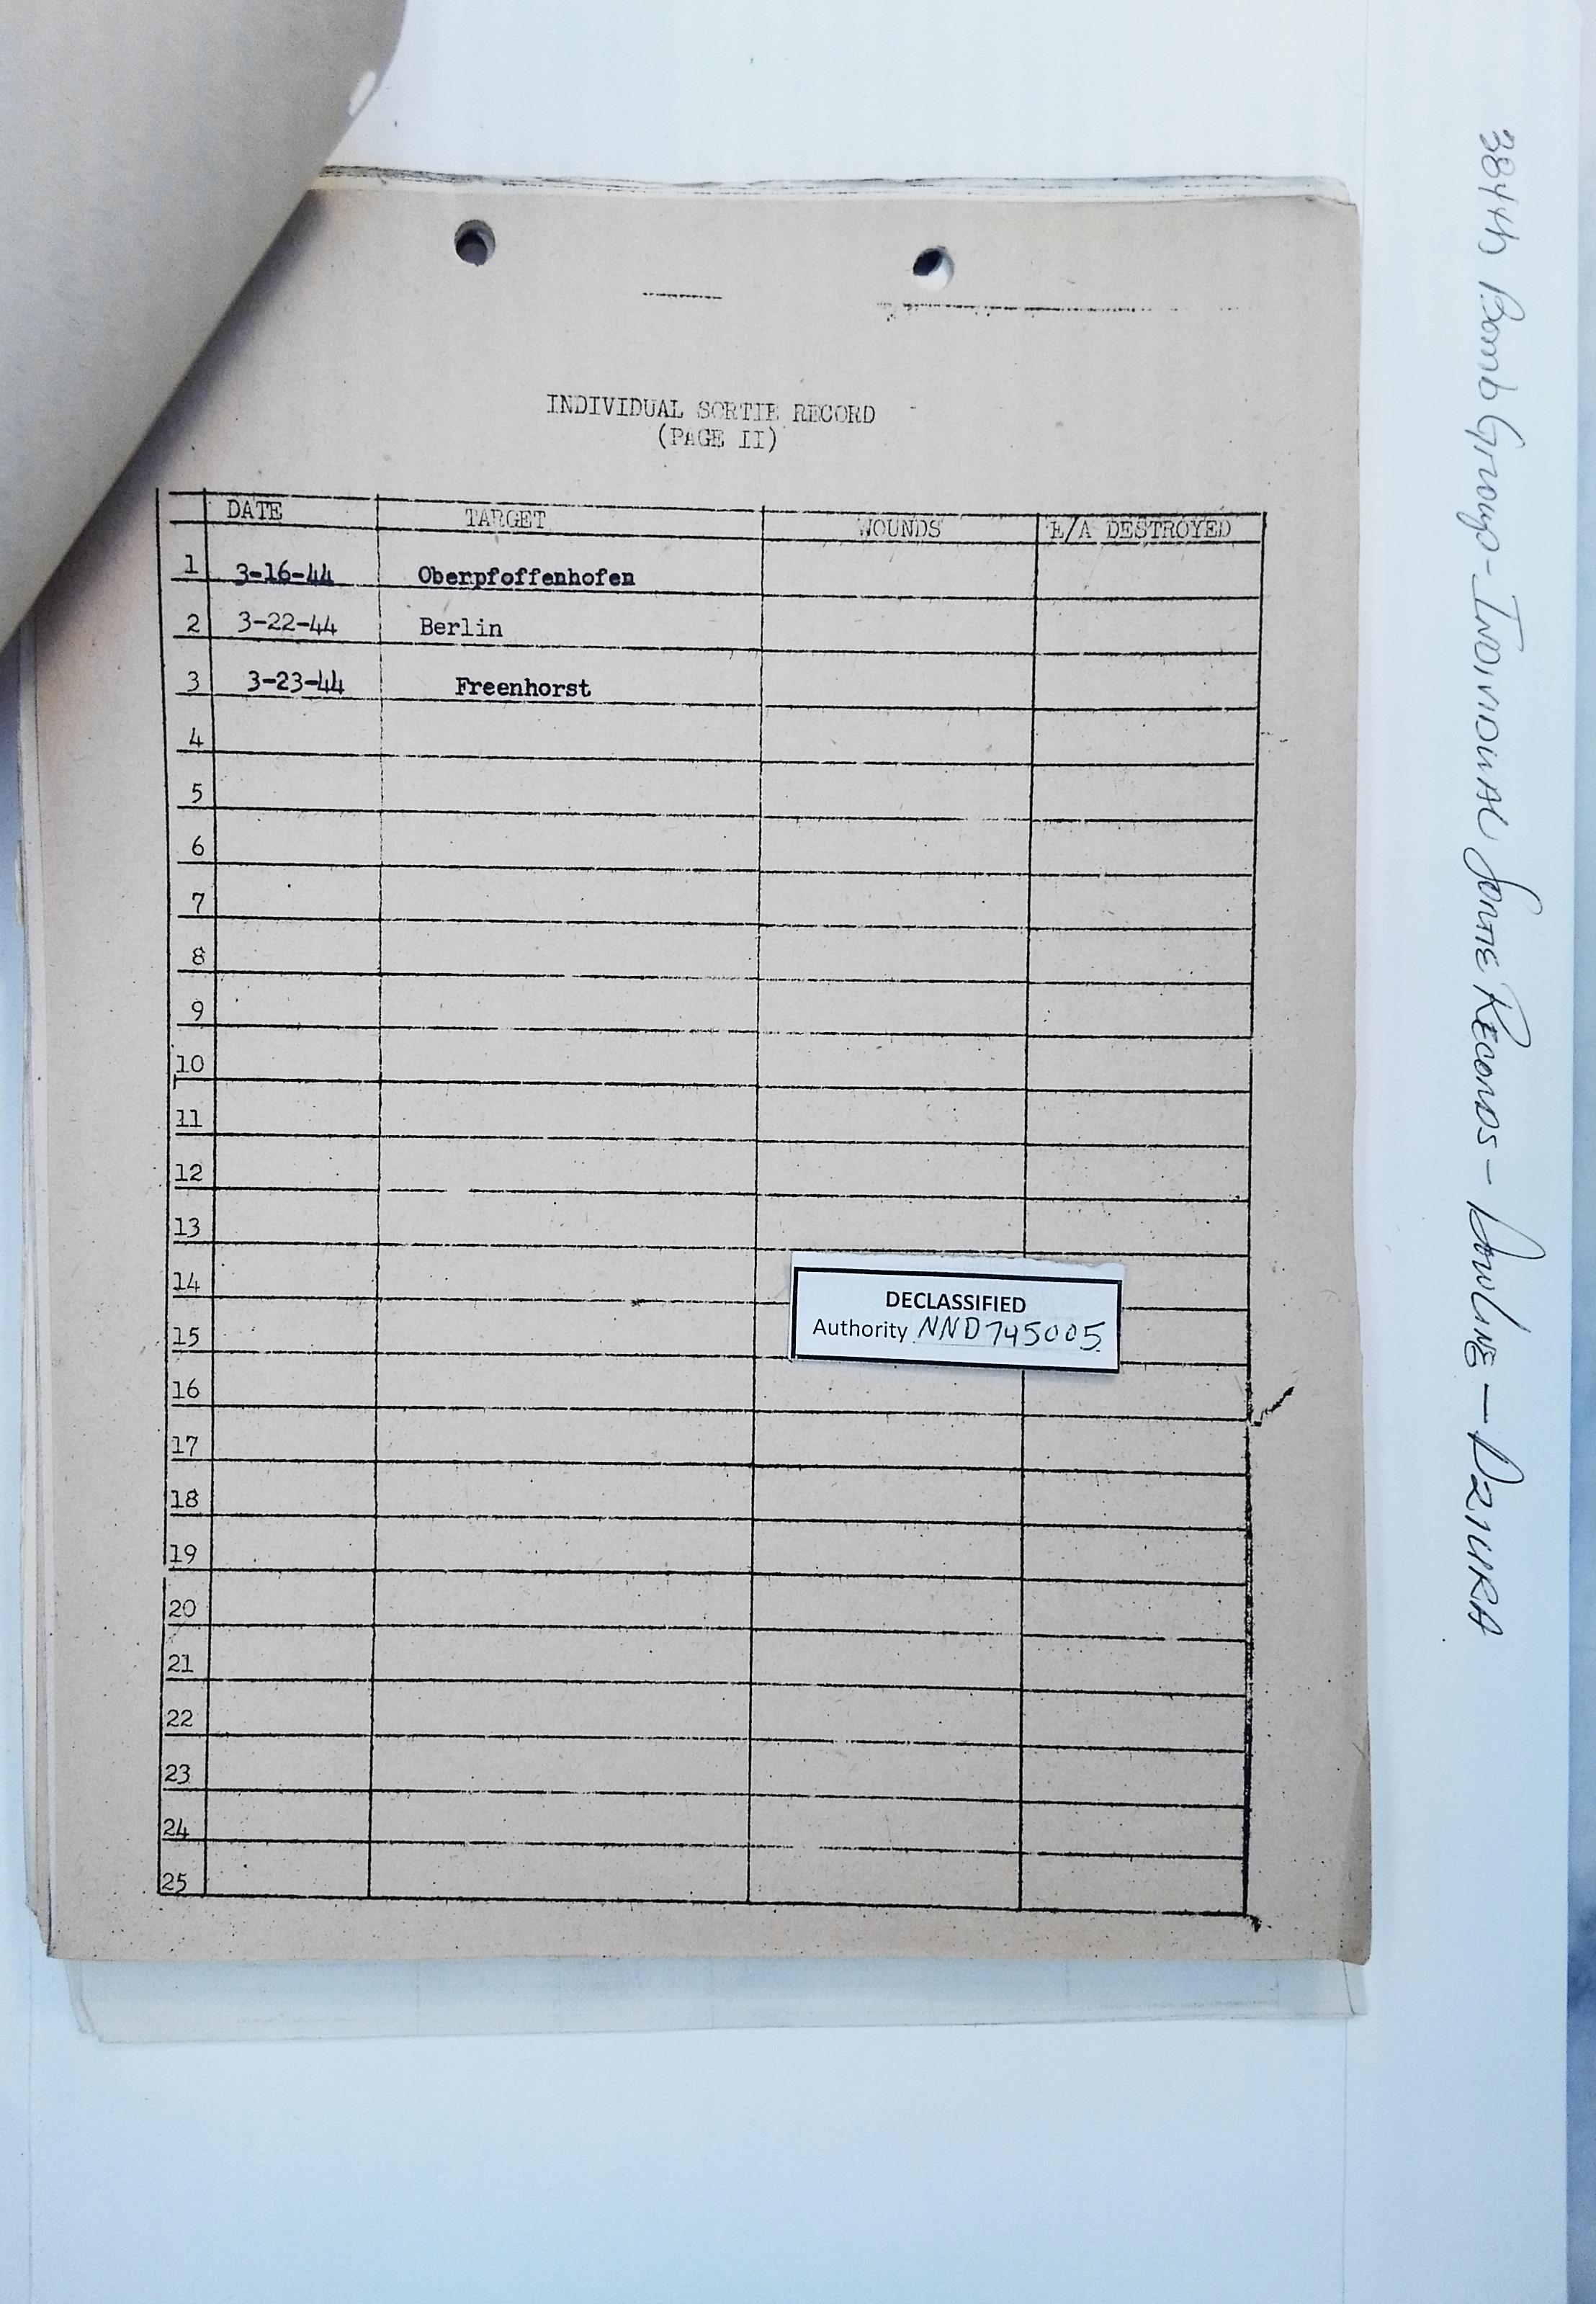 INDIVIDUAL SORTIE RECORD
(PAGE II)
DATE TARGET WOUNDS E/A DESTROYED
1 3-16-44 Oberpfoffenhofen
2 3-22-44 Berlin
3 3-23-44 Freenhorst
4
5
6
7
8
9
10
11
12
13
14
15
16
17
18
19
20
21
22
23
24
25
DECLASSIFIED
Authority NND 745005
384th Bomb Group - INDIVIDUAL SORTIE RECORDS - DOWLING - DZIURA